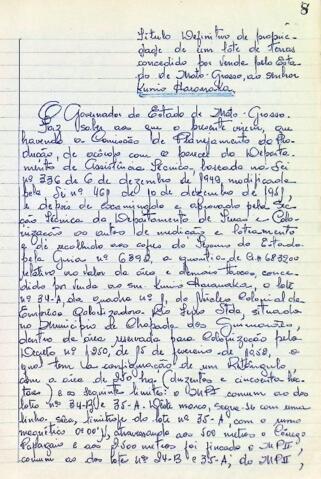 8
Título Definitivo de proprie-
dade de um lote de terras
concedido por venda pelo Esta-
do de Mato-Grosso, ao senhor
Kunio Haranaka.
O Governador do Estado de Mato-Grosso.
Faz saber aos que o presente virem, que
havendo a Comissão de Planejamento da Pro-
dução, de acôrdo com o parecer do Departa-
mento de Assistência Técnica, baseada na Lei
nº 336 de 6 de dezembro de 1949, modificada
pela Lei nº 461 de 10 de dezembro de 1951,
e depois de examinado e aprovado pela Se-
ção Técnica do Departamento de Terras e Colo-
nização os autos de medição e loteamento
e de recolhido aos cofres do Tesouro do Estado
pela Guia nº 6392, a quantia de
relativo ao valor da área e demais taxas, conce-
dido por venda ao snr. Kunio Haranaka, o lote
nº 34-A, da quadra nº 1, do Núcleo Colonial da
Emprêsa Colonizadora Rio Ltda, situada
no Município de Chapada dos Guimarães,
dentro da área reservada para Colonização pelo
Decreto nº 1250, de 15 de fevereiro de 1952, o
qual tem a configuração de um Retângulo,
com a área de 250 ha (duzentos e cincoenta hec-
tares) e os seguintes limites: o MPI comum ao dos
lotes nº 34-B e 35-A. Dêste marco, segue-se com uma
linha sêca, limítrofe do lote nº 35-A, com o rumo
magnético 0º00'N, atravessando aos 500 metros o Córrego
Papagaio e aos 2500 metros foi fincado o MPII,
comum ao dos lotes nº 24-B e 35-A; do MPII,